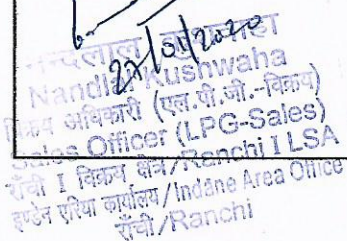 27/01/2020
नन्दलाल कुशवाहा
Nandlal Kushwaha
विक्रय अधिकारी (एल.पी.जी.-विक्रय)
Sales Officer (LPG-Sales)
राँची I विक्रय क्षेत्र/Ranchi I LSA
इण्डेन एरिया कार्यालय/Indane Area Office
राँची/Ranchi